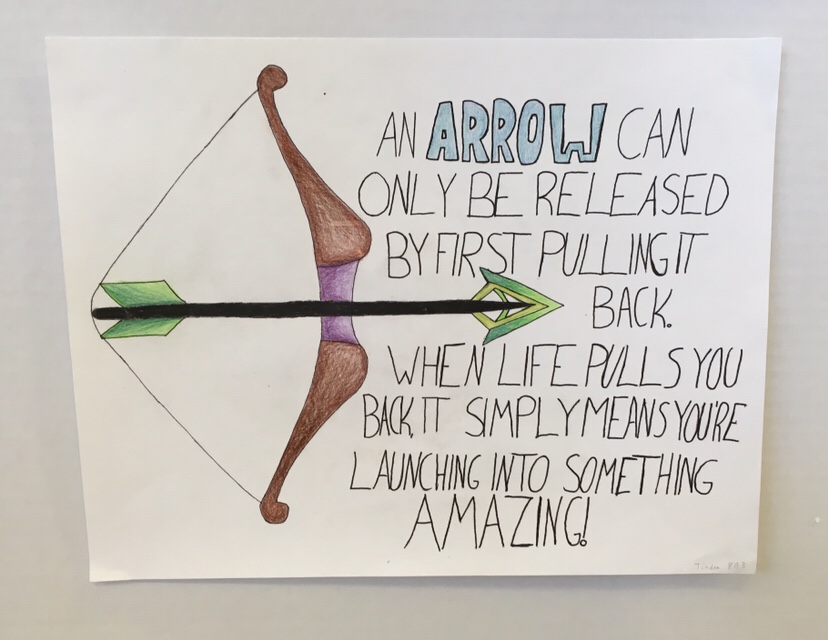 AN ARROW CAN
ONLY BE RELEASED
BY FIRST PULLING IT
BACK.
WHEN LIFE PULLS YOU
BACK, IT SIMPLY MEANS YOU'RE
LAUNCHING INTO SOMETHING
AMAZING!